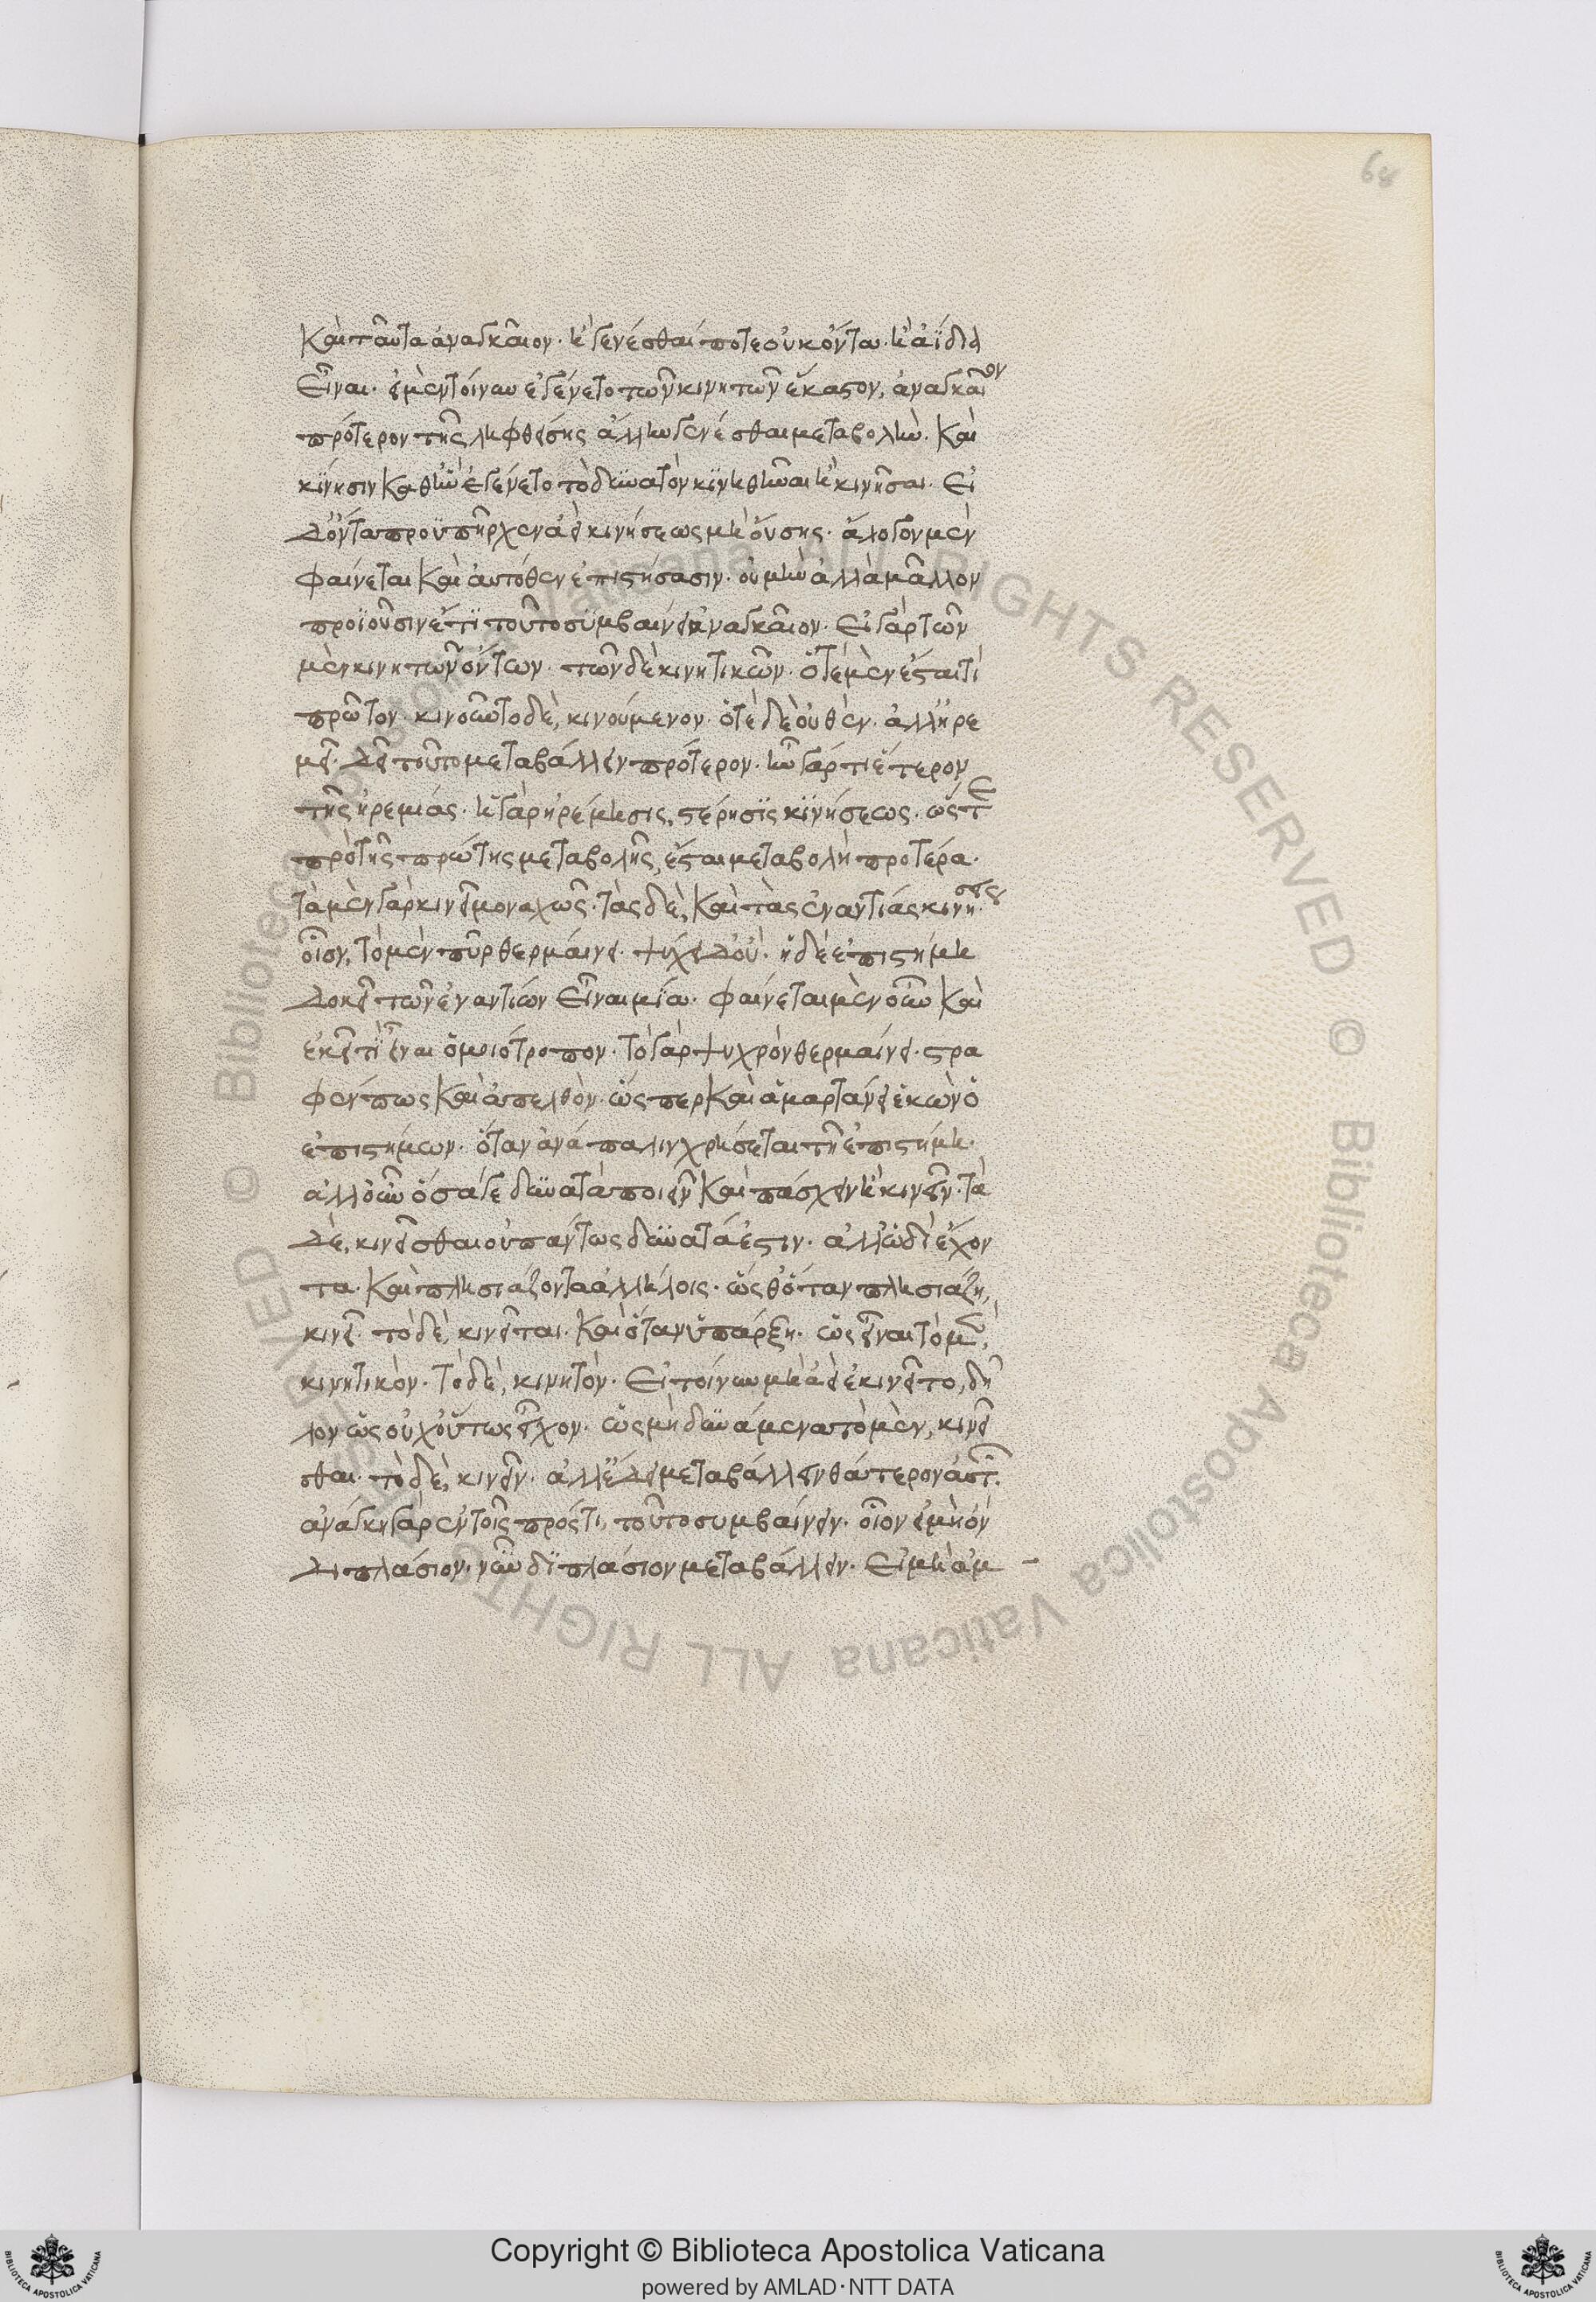 68
καὶ ταῦτα ἀναγκαῖον· ἢ γενέσθαι ποτε οὐκ ὄντα· ἢ ἀΐδια
εἶναι· εἰ μὲν τοίνυν ἐγένετο τῶν κινητῶν ἕκαστον, ἀναγκαῖον
πρότερον τῆς ληφθείσης ἄλλην γενέσθαι μεταβολὴν. καὶ
κίνησιν καθ ἣν ἐγένετο τὸ δυνατὸν κινηθῆναι ἢ κινῆσαι. εἰ
δ ὄντα προϋπῆρχεν ἀεὶ κινήσεως μὴ οὔσης· ἄλογον μὲν
φαίνεται καὶ αὐτόθεν ἐπιστήσασιν· οὐ μὴν ἀλλὰ μᾶλλον
προϊοῦσιν ἔτι τοῦτο συμβαίνειν ἀναγκαῖον. εἰ γὰρ τῶν
μὲν κινητῶν ὄντων· τῶν δὲ κινητικῶν· ὅτὲ μὲν ἔσται τὶ
πρῶτον κινοῦν τὸ δὲ, κινούμενον· ὁτὲ δὲ οὐθὲν· ἀλλ ἠρε
μεῖ· δεῖ τοῦτο μεταβάλλειν πρότερον· ἦν γάρ τι ἕτερον
τῆς ἠρεμίας· ἡ γὰρ ἠρέμησις, στέρησις κινήσεως. ὥστε
πρὸ τῆς πρώτης μεταβολῆς, ἔσται μεταβολὴ προτέρα.
τὰ μὲν γὰρ κινεῖ μοναχῶς· τὰς δὲ, καὶ τὰς ἐναντίας κινήσεις·
οἷον, τὸ μὲν πῦρ θερμαίνει· ψύχει δ οὐ· ἡ δὲ ἐπιστήμη
δοκεῖ τῶν ἐναντίων εἶναι μία. φαίνεται μὲν οὖν καὶ
ἐκεῖ τὶ εἶναι ὁμοιότροπον· τὸ γὰρ ψυχρὸν θερμαίνει· στρα
φέν πως καὶ ἀπελθὸν· ὥσπερ καὶ ἁμαρτάνει ἑκὼν ὁ
ἐπιστήμων· ὅταν ἀνάπαλιν χρήσεται τῇ ἐπιστήμη·
ἀλλ οὖν ὅσα γε δυνατὰ ποιεῖν καὶ πάσχειν ἢ κινεῖν· τὰ
δὲ, κινεῖσθαι οὐ πάντως δυνατά ἐστιν· ἀλλ ὡδὶ ἔχον
τα· καὶ πλησιάζοντα ἀλλήλοις· ὥσθ ὅταν πλησιάζη,
κινεῖ· τὸ δὲ, κινεῖται· καὶ ὅταν ὑπάρξη· ὡς εἶναι τὸ μὲν,
κινητικὸν· τὸ δὲ, κινητὸν. εἰ τοίνυν μὴ ἀεὶ ἐκινεῖτο, δῆ
λον ὡς οὐχ οὕτως εἶχον· ὡς μὴ δυνάμενα τὸ μὲν, κινεῖ
σθαι· τὸ δὲ, κινεῖν· ἀλλ ἔδει μεταβάλλειν θάτερον αὐτῶν·
ἀνάγκη γὰρ ἐν τοῖς πρός τι, τοῦτο συμβαίνειν· οἷον εἰ μὴ ὂν
διπλάσιον· νῦν διπλάσιον μεταβάλλειν· εἰ μὴ ἀμ
Copyright © Biblioteca Apostolica Vaticana
powered by AMLAD·NTT DATA